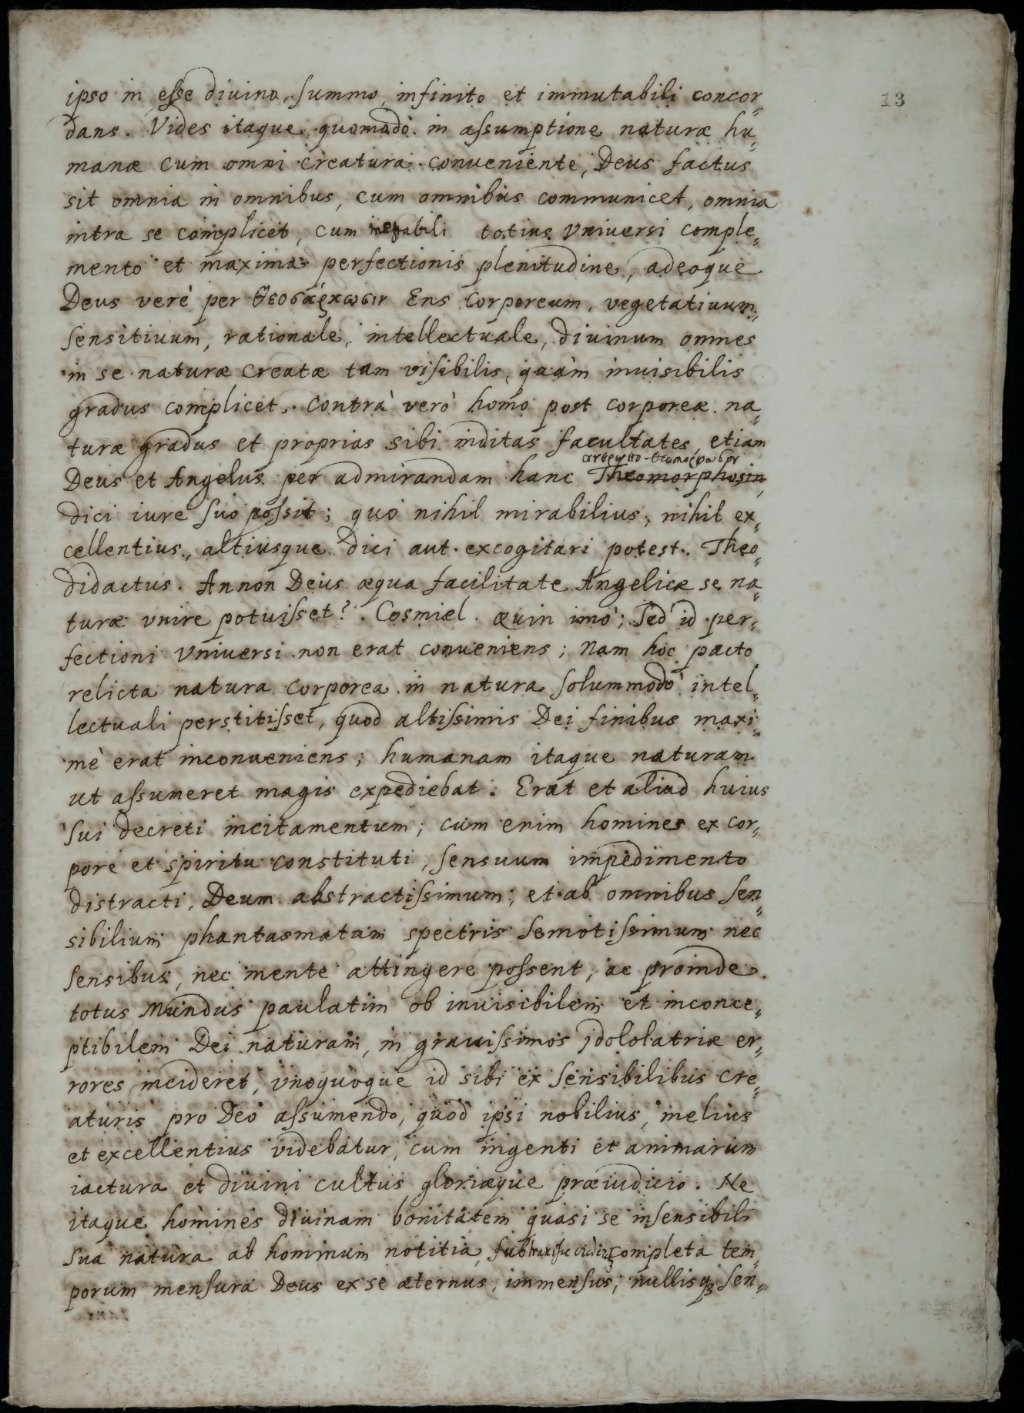 13
ipso in esse divino, summo, infinito et immutabili concor-
dans. Vides itaque, quomodò in assumptione naturæ hu-
manæ cum omni creatura conveniente, Deus factus
sit omnia in omnibus, cum omnibus communicet, omnia
intra se complicet, cum totius Vniuersi comple-
mento et maxima perfectionis plenitudine, adeoque
Deus verè per Ens corporeum, vegetatiuum,
sensitiuum, rationale, intellectuale, diuinum omnes
in se naturæ creatæ tam visibilis, quàm inuisibilis
gradus complicet. Contrà verò homo post corporeæ na-
turæ gradus et proprias sibi inditas facultates etiam
Deus et Angelus per admirandam hanc Theomorphosin
dici iure suo possit; quo nihil mirabilius, nihil ex-
cellentius, altiusque dici aut excogitari potest. Theo-
didactus. Annon Deus æqua facilitate Angelicæ se na-
turæ vnire potuisset? Cosmiel. Quin imò; Sed id per-
fectioni Vniuersi non erat conueniens; Nam hoc pacto
relicta natura corporea in natura solummodò intel-
lectuali perstitisset, quod altissimis Dei finibus maxi-
mè erat inconueniens; humanam itaque naturam
ut assumeret magis expediebat. Erat et aliud huius
sui decreti incitamentum; cum enim homines ex cor-
pore et spiritu constituti, sensuum impedimento
distracti, Deum abstractissimum, et ab omnibus sen-
sibilium phantasmatum spectris semotissimum nec
sensibus, nec mente attingere possent, ac proinde
totus Mundus paulatim ob inuisibilem et inconce-
ptibilem Dei naturam, in grauissimos jdololatriæ er-
rores incideret, vnoquoque id sibi ex sensibilibus cre-
aturis pro Deo assumendo, quod ipsi nobilius, melius
et excellentius videbatur, cum ingenti et animarum
iactura et diuini cultus gloriæque præiudicio. Ne
itaque homines diuinam bonitatem quasi se insensibili
sua natura ab hominum notitia, completa tem-
porum mensura Deus ex se æternus, immensus, nullisq3 sen-